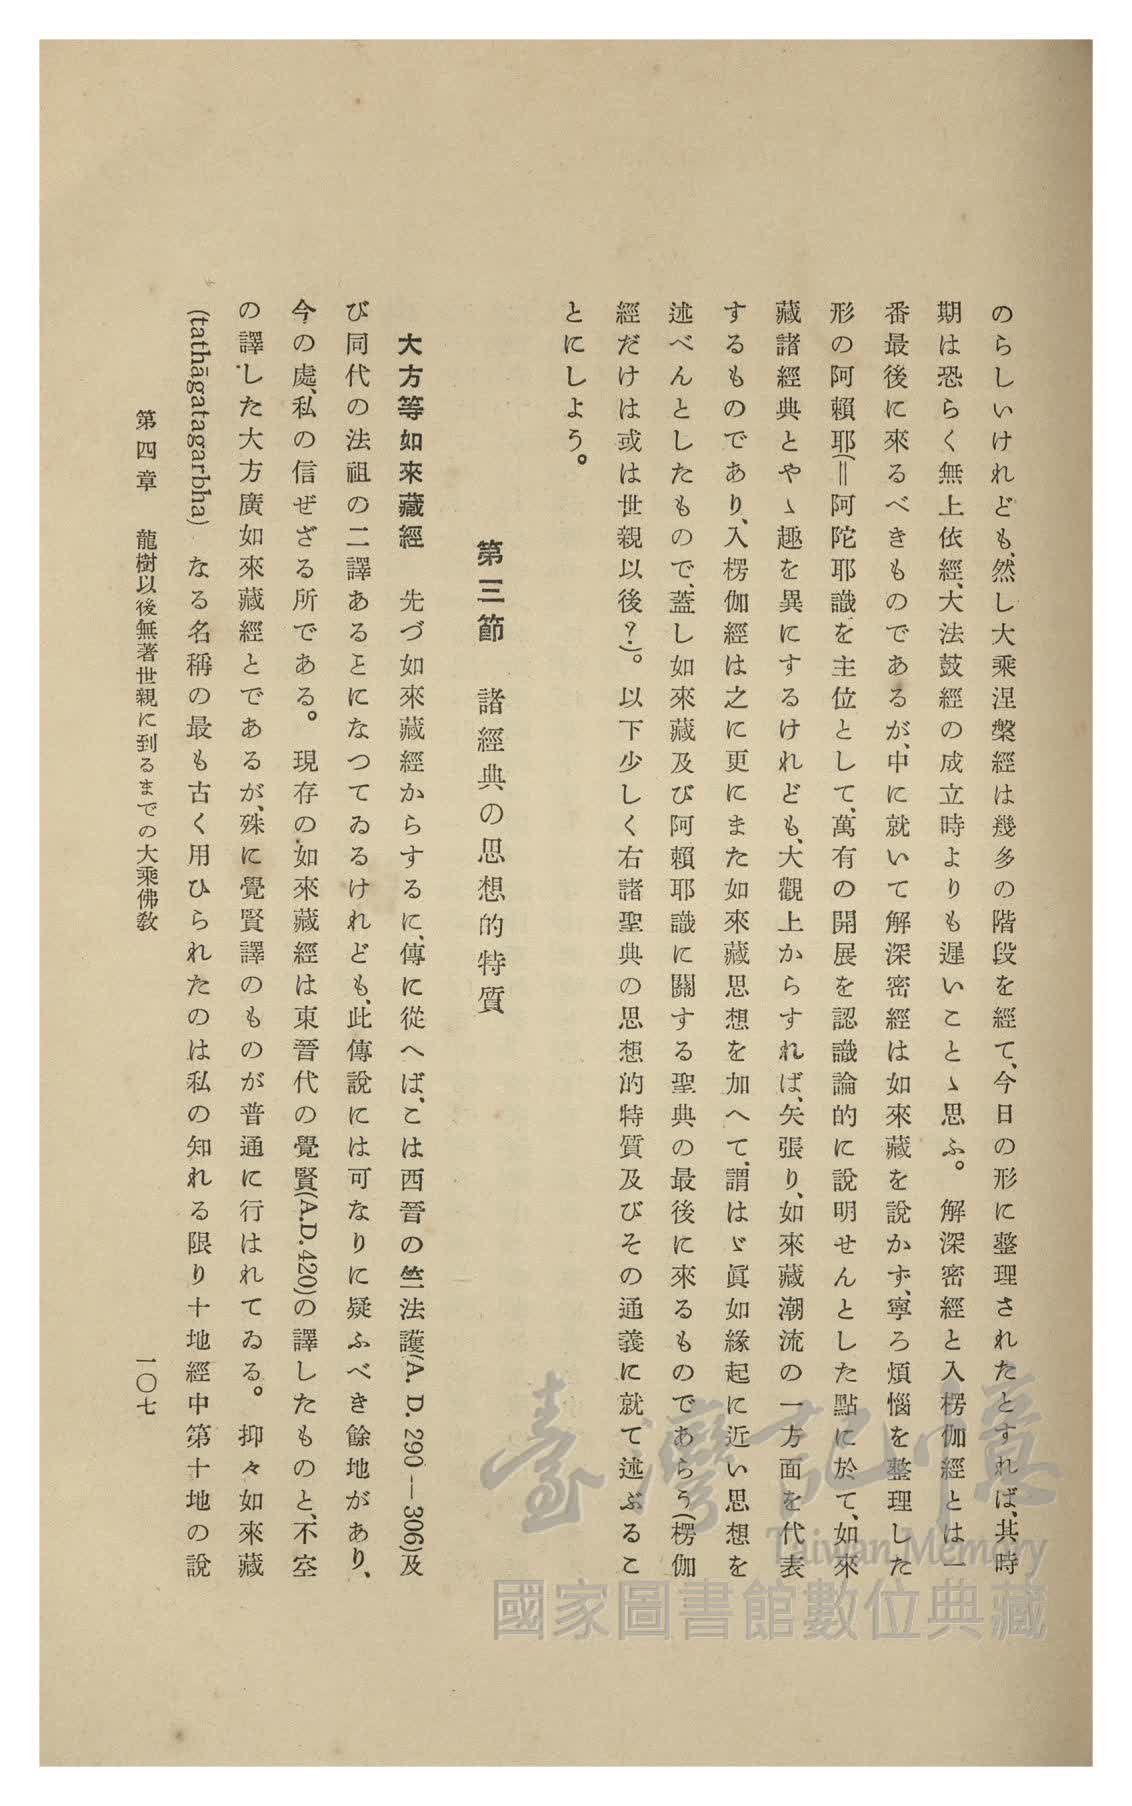 のらしいけれども、然し大乘涅槃經は幾多の階段を經て、今日の形に整理されたとすれば、其時
期は恐らく無上依經、大法鼓經の成立時よりも遲いことゝ思ふ。 解深密經と入楞伽經とは一
番最後に來るべきものであるが、中に就いて解深密經は如來藏を說かず、寧ろ煩惱を整理した
形の阿賴耶(=阿陀耶識を主位として、萬有の開展を認識論的に說明せんとした點に於て、如來
藏諸經典とやゝ趣を異にするけれども、大觀上からすれば、矢張り、如來藏潮流の一方面を代表
するものであり、入楞伽經は之に更にまた如來藏思想を加へて、謂はゞ眞如緣起に近い思想を
述べんとしたもので、蓋し如來藏及び阿賴耶識に關する聖典の最後に來るものであらう(楞伽
經だけは或は世親以後?)。 以下少しく右諸聖典の思想的特質及びその通義に就て述ぶるこ
とにしよう。
第三節 諸經典の思想的特質
大方等如來藏經 先づ如來藏經からするに、傳に從へば、こは西晉の竺法護(A. D. 290—306)及
び同代の法祖の二譯あることになつてゐるけれども、此傳說には可なりに疑ふべき餘地があり、
今の處、私の信ぜざる所である。 現存の如來藏經は東晉代の覺賢(A.D. 420)の譯したものと、不空
の譯した大方廣如來藏經とであるが、殊に覺賢譯のものが普通に行はれてゐる。 抑々如來藏
(tathāgatagarbha) なる名稱の最も古く用ひられたのは私の知れる限り十地經中第十地の說
第四章 龍樹以後無著世親に到るまでの大乘佛敎
一〇七
臺灣記憶
Taiwan Memory
國家圖書館數位典藏